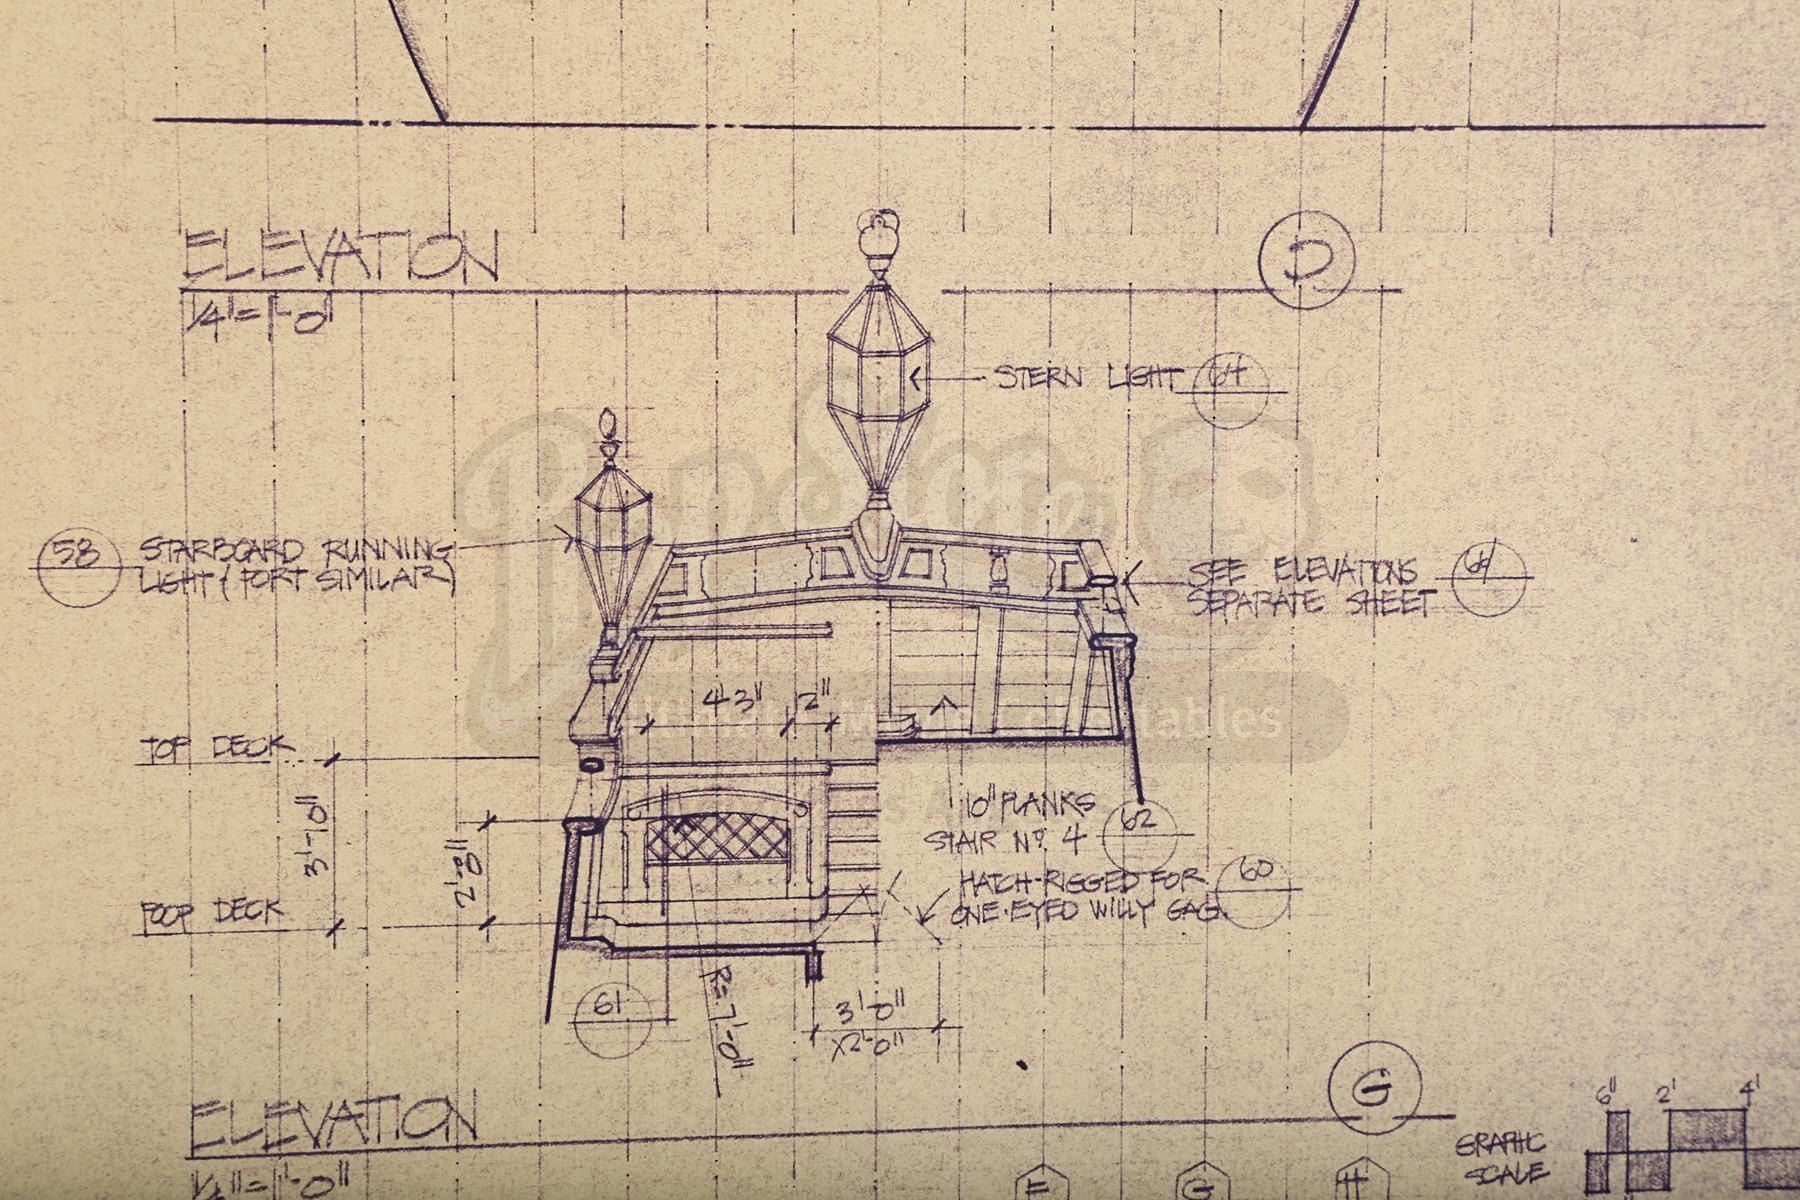 ELEVATION
1/4"=1'-0"
D
STERN LIGHT 64
58 STARBOARD RUNNING
LIGHT (PORT SIMILAR)
SEE ELEVATIONS
SEPARATE SHEET
43" 2"
TOP DECK
3'-10"
2'-8"
POOP DECK
10" PLANKS
STAIR Nº. 4 62
HATCH-RIGGED FOR 60
ONE-EYED WILLY GAG.
61
R=7'-0"
3'-0"
X2'-0"
ELEVATION
1/4"=1'-0"
G
F G H
GRAPHIC
SCALE
6" 2' 4'